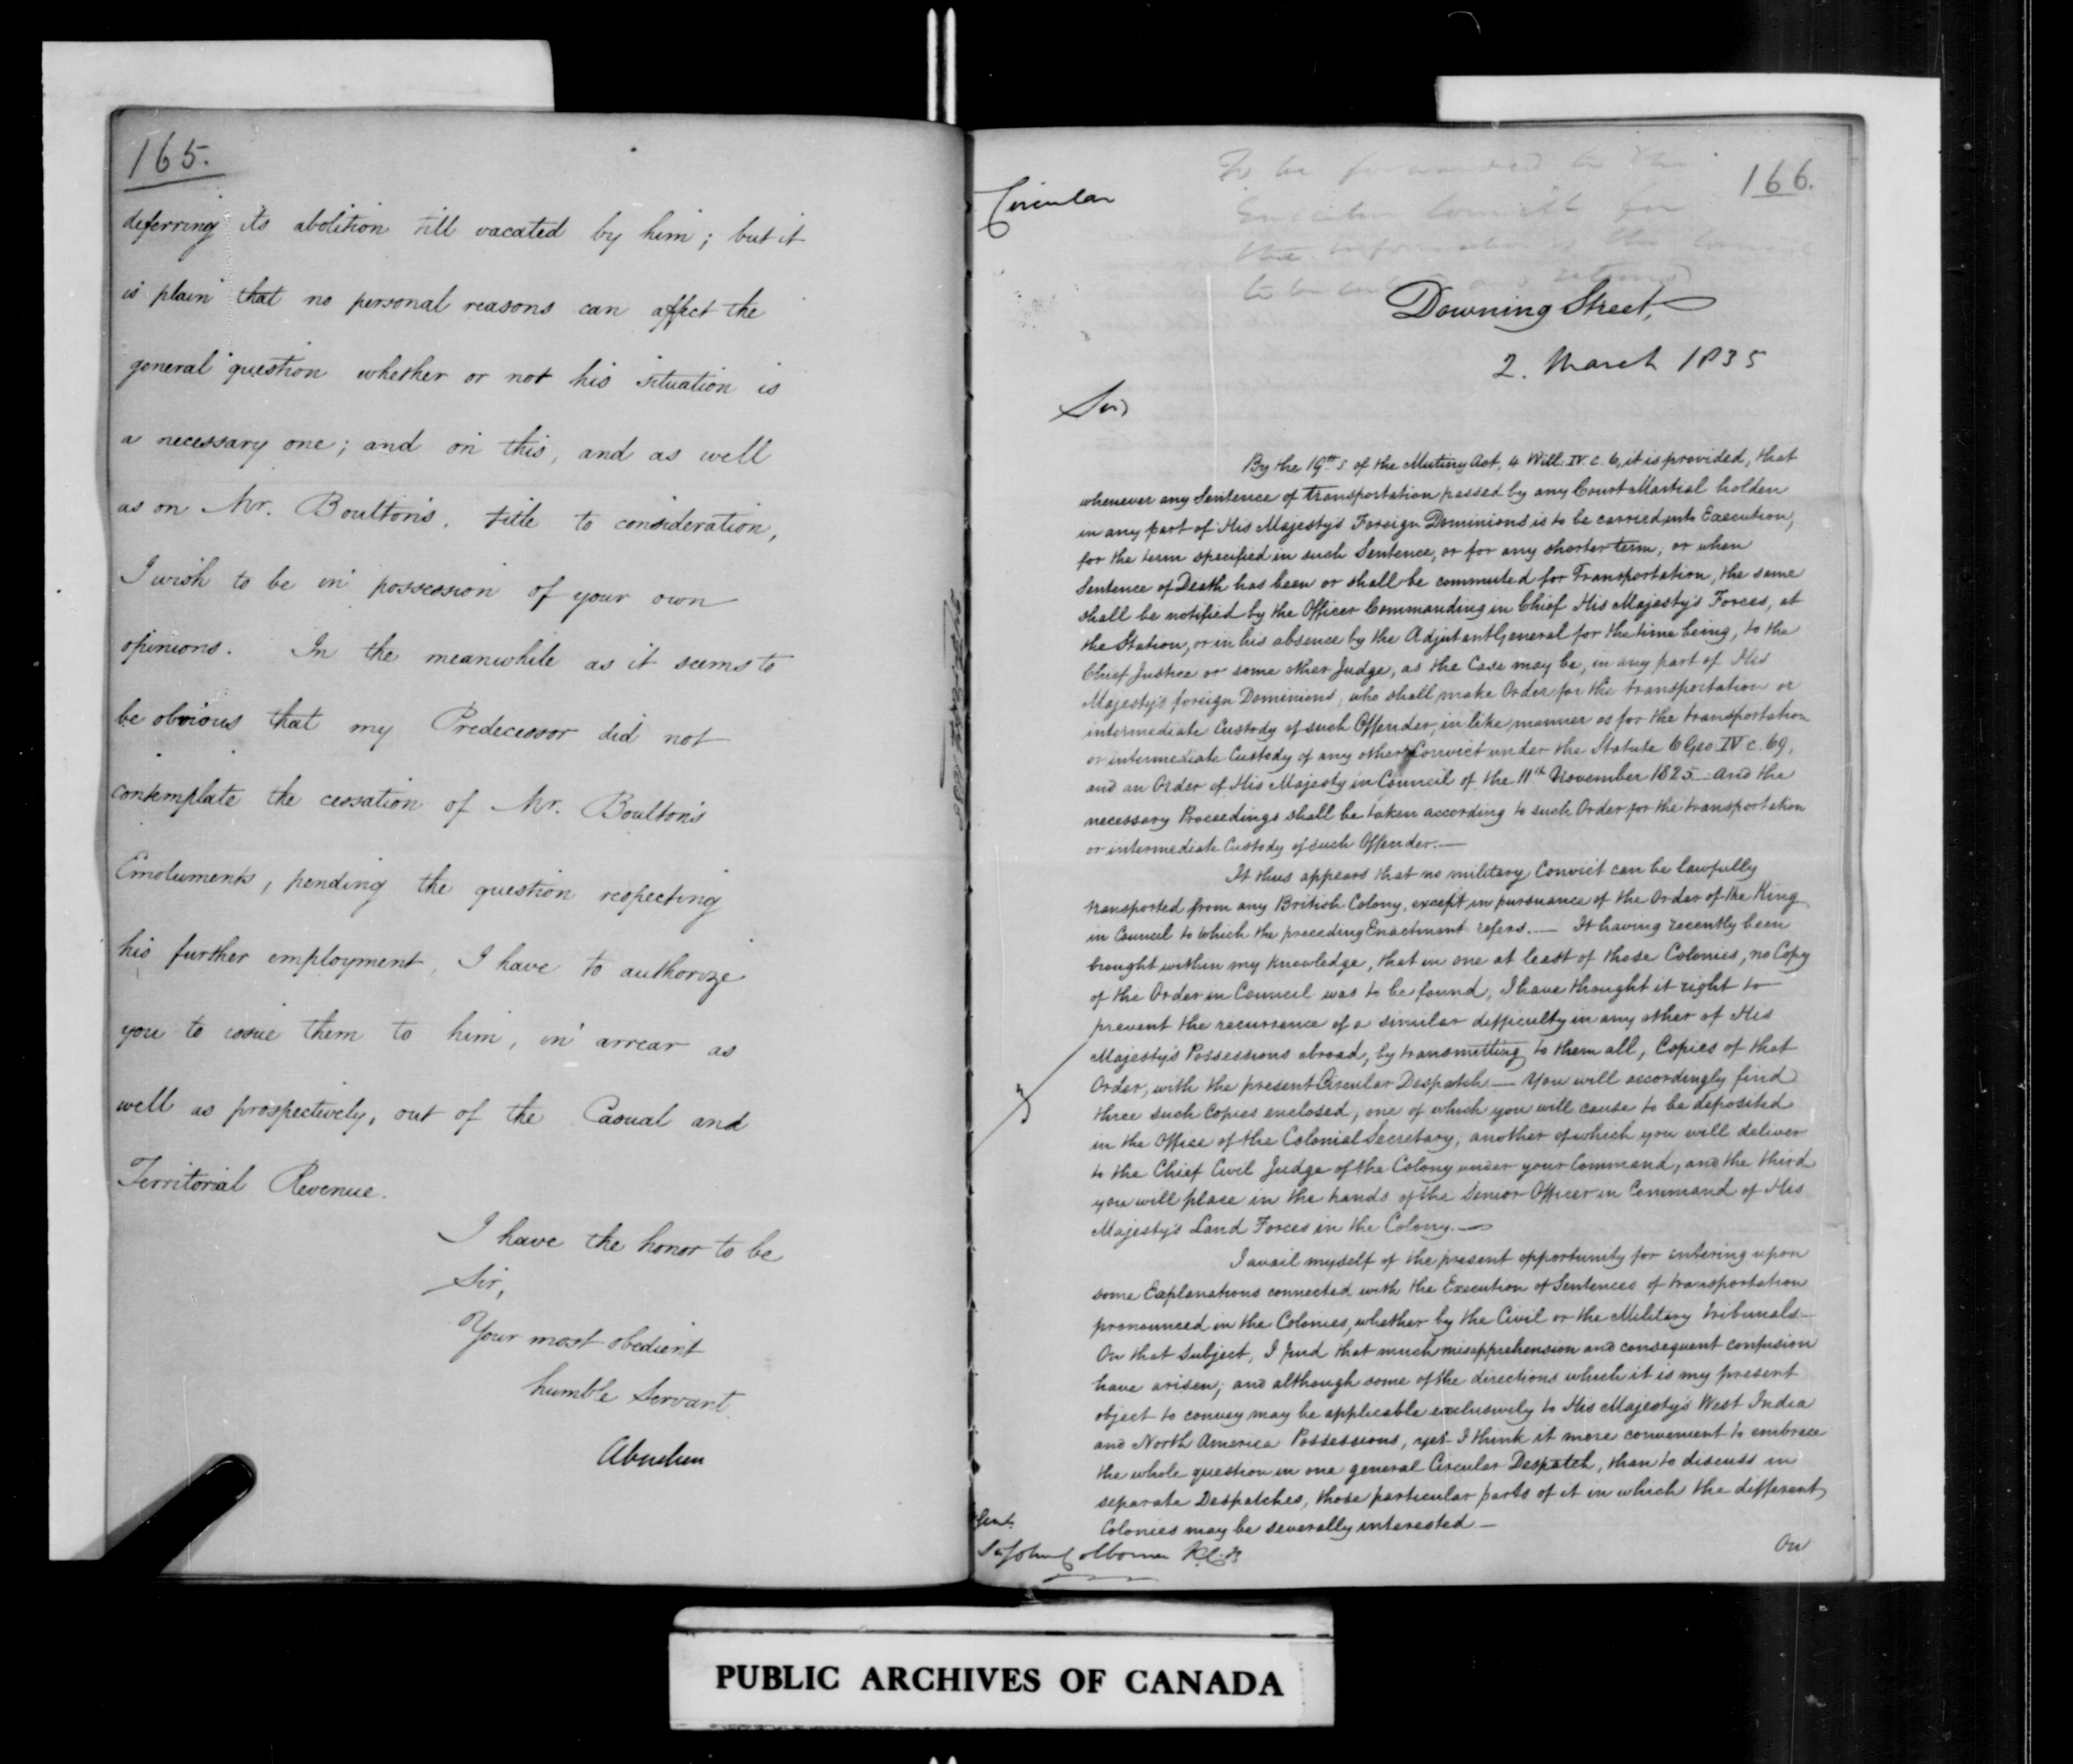 165.
deferring its abolition till vacated by him; but it
is plain that no personal reasons can affect the
general question whether or not his situation is
a necessary one; and on this, and as well
as on Mr. Boulton's. title to consideration,
I wish to be in possession of your own
opinions. In the meanwhile as it seems to
be obvious that my Predecessor did not
contemplate the cessation of Mr. Boulton's
Emoluments, pending the question respecting
his further employment, I have to authorize
you to issue them to him, in arrear as
well as prospectively, out of the Casual and
Territorial Revenue.
I have the honor to be
Sir,
Your most obedient
humble Servant.
Aberdeen
166.
To be forwarded to the
Executive Council for
the information of the Council
to be
Circular
Downing Street,
2. March 1835
Sir
By the 19th s. of the Mutiny Act, 4 Will: IV. c. 6, it is provided, that
whenever any Sentence of transportation passed by any Court Martial holden
in any part of His Majesty's Foreign Dominions is to be carried into Execution,
for the term specified in such Sentence, or for any shorter term; or when
Sentence of Death has been or shall be commuted for Transportation, the same
shall be notified by the Officer Commanding in Chief His Majesty's Forces, at
the Station, or in his absence by the Adjutant General for the time being, to the
Chief Justice or some other Judge, as the Case may be, in any part of His
Majesty's foreign Dominions, who shall make Order for the transportation or
intermediate Custody of such Offender, in like manner as for the transportation
or intermediate Custody of any other Convict under the Statute 6 Geo: IV c. 69,
and an Order of His Majesty in Council of the 11th November 1825 — And the
necessary Proceedings shall be taken according to such Order for the transportation
or intermediate Custody of such Offender. —
It thus appears that no military Convict can be lawfully
transported from any British Colony, except in pursuance of the Order of the King
in Council to which the preceding Enactment refers. — It having recently been
brought within my knowledge, that in one at least of those Colonies, no Copy
of the Order in Council was to be found, I have thought it right to
prevent the recurrence of a similar difficulty in any other of His
Majesty's Possessions abroad, by transmitting to them all, Copies of that
Order, with the present Circular Despatch — You will accordingly find
three such Copies enclosed, one of which you will cause to be deposited
in the Office of the Colonial Secretary, another of which you will deliver
to the Chief Civil Judge of the Colony under your Command, and the third
you will place in the hands of the Senior Officer in Command of His
Majesty's Land Forces in the Colony. —
I avail myself of the present opportunity for entering upon
some Explanations connected with the Execution of Sentences of transportation
pronounced in the Colonies, whether by the Civil or the Military tribunals —
On that Subject, I find that much misapprehension and consequent confusion
have arisen; and although some of the directions which it is my present
object to convey may be applicable exclusively to His Majesty's West India
and North America Possessions, yet I think it more convenient to embrace
the whole question in one general Circular Despatch, than to discuss in
separate Despatches, those particular parts of it in which the different
Colonies may be severally interested —
On
Sir John Colborne K.C.B
PUBLIC ARCHIVES OF CANADA